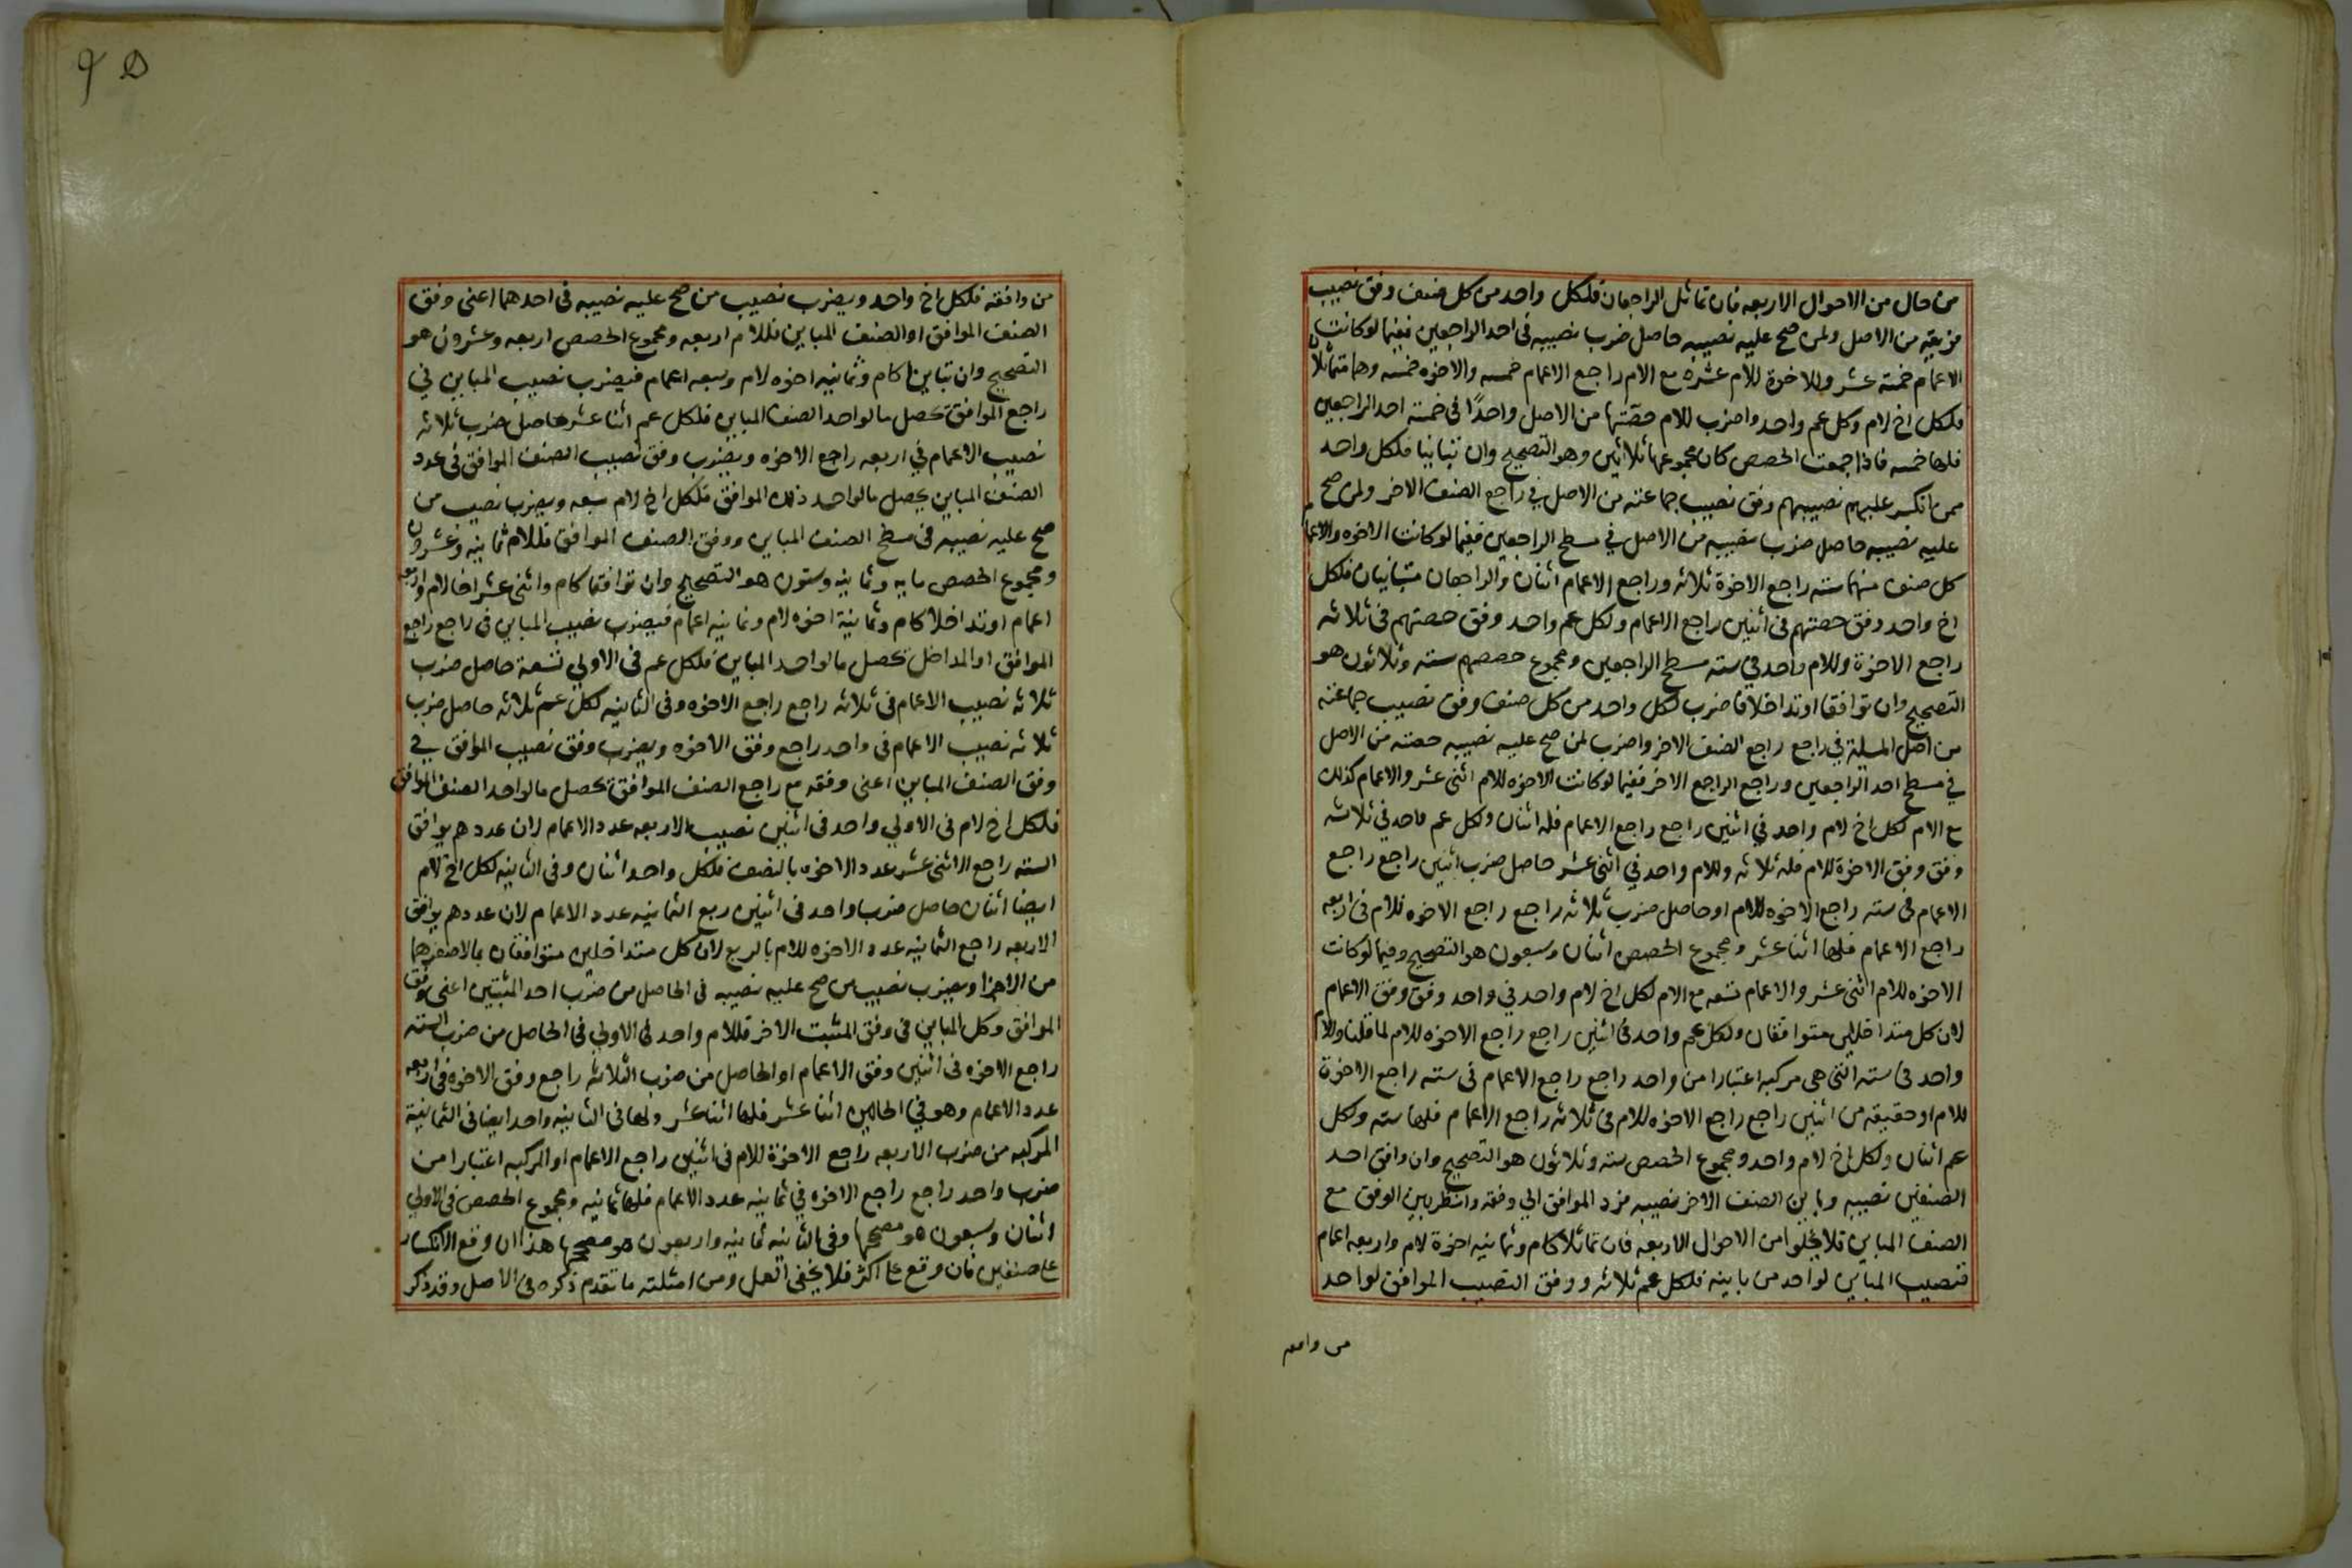 من حال من الاحوال الاربعه فان تماثل الراجعان فلكل واحد من كل صنف وفق نصيب
فريقه من الاصل ولمن صح عليه نصيبه حاصل ضرب نصيبه في احد الراجعين ففيما لو كانت
الاعمام خمسة عشر وللاخوة للام عشره مع الام راجع الاعمام خمسه والاخوه خمسه وهما متماثلان
فلكل اخ لام وكل عم واحد واضرب للام حصّتها من الاصل واحدًا في خمسة احد الراجعين
فلها خمسه فاذا جمعت الحصص كان مجموعها ثلاثين وهو التصحيح وان تباينا فلكل واحد
ممن انكسر عليهم نصيبهم وفق نصيب جماعته من الاصل في راجع الصنف الاخر ولمن صح
عليه نصيبه حاصل ضرب نصيبه من الاصل في مسطح الراجعين ففيما لو كانت الاخوه والاعمام
كل صنف منهما سته راجع الاخوة ثلاثه وراجع الاعمام اثنان والراجعان متباينان فلكل
اخ واحد وفق حصتهم في اثنين راجع الاعمام ولكل عم واحد وفق حصتهم في ثلاثه
راجع الاخوة وللام واحد في سته مسطح الراجعين ومجموع حصصهم سته وثلاثون هو
التصحيح وان توافقا اوتداخلا فاضرب لكل واحد من كل صنف وفق نصيب جماعته
من اصل المسلة في راجع راجع الصنف الاخر واضرب لمن صح عليه نصيبه حصته من الاصل
في مسطح احد الراجعين وراجع الراجع الاخر ففيما لو كانت الاخوه للام اثنى عشر والاعمام كذلك
مع الام لكل اخ لام واحد في اثنين راجع راجع الاعمام فله اثنان ولكل عم واحد في ثلاثه
وفق وفق الاخوة للام فله ثلاثه وللام واحد في اثنى عشر حاصل ضرب اثنين راجع راجع
الاعمام في سته راجع الاخوه للام او حاصل ضرب ثلاثه راجع راجع الاخوه للام في اربعه
راجع الاعمام فلها اثنا عشر ومجموع الحصص اثنان وسبعون هو التصحيح وفيما لو كانت
الاخوه للام اثنى عشر والاعمام تسعه مع الام لكل اخ لام واحد في واحد وفق وفق الاعمام
لان كل متداخلين متوافقان ولكل عم واحد في اثنين راجع راجع الاخوه للام لما قلنا وللام
واحد في سته التي هي مركبه اعتبارا من واحد راجع راجع الاعمام في سته راجع الاخوة
للام او حقيقه من اثنين راجع راجع الاخوه للام في ثلاثه راجع الاعمام فلها سته ولكل
عم اثنان ولكل اخ لام واحد ومجموع الحصص سته وثلاثون هو التصحيح وان وافق احد
الصنفين نصيبه وباين الصنف الاخر نصيبه فرد الموافق الي وفقه وانظر بين الوفق مع
الصنف المباين فلا يخلوا من الاحوال الاربعه فان تماثلا كام وثمانيه اخوة لام واربعه اعمام
فنصيب المباين لواحد من باينه فلكل عم ثلاثه ووفق النصيب الموافق لواحد
من وافقه
٩٥
من وافقه فلكل اخ واحد ويضرب نصيب من صح عليه نصيبه في احدهما اعنى وفق
الصنف الموافق او الصنف المباين فللام اربعه ومجموع الحصص اربعه وعشرون هو
التصحيح وان تباينا كام وثمانيه اخوه لام وسبعه اعمام فيضرب نصيب المباين في
راجع الموافق تحصل ما لواحد الصنف المباين فلكل عم اثنا عشر حاصل ضرب ثلاثه
نصيب الاعمام في اربعه راجع الاخوه ويضرب وفق نصيب الصنف الموافق في عدد
الصنف المباين يحصل ما لواحد ذلك الموافق فلكل اخ لام سبعه ويضرب نصيب من
صح عليه نصيبه في مسطح الصنف المباين ووفق الصنف الموافق فللام ثمانيه وعشرون
ومجموع الحصص مايه وثمانيه وستون هو التصحيح وان توافقا كام واثنى عشر اخا لام واربعه
اعمام او تداخلا كام وثمانية اخوه لام وثمانيه اعمام فيضرب نصيب المباين في راجع راجع
الموافق او المداخل تحصل ما لواحد المباين فلكل عم في الاولي تسعة حاصل ضرب
ثلاثه نصيب الاعمام في ثلاثه راجع راجع الاخوه وفي الثانيه لكل عم ثلاثه حاصل ضرب
ثلاثه نصيب الاعمام في واحد راجع وفق الاخوه ويضرب وفق نصيب الموافق في
وفق الصنف المباين اعنى وفقه مع راجع الصنف الموافق تحصل ما لواحد الصنف الموافق
فلكل اخ لام في الاولي واحد في اثنين نصيب الاربعه عدد الاعمام لان عددهم يوافق
السته راجع الاثنى عشر عدد الاخوه بالنصف فلكل واحد اثنان وفي الثانيه لكل اخ لام
ايضا اثنان حاصل ضرب واحد في اثنين ربع الثمانيه عدد الاعمام لان عددهم يوافق
الاربعه راجع الثمانيه عدد الاخوه للام بالربع لان كل متداخلين متوافقان بما لاصغرهما
من الاجزا ويضرب نصيب من صح عليه نصيبه في الحاصل من ضرب احد المثبتين اعنى وفق
الموافق وكل المباين في وفق المثبت الاخر فللام واحد في الاولي في الحاصل من ضرب السته
راجع الاخوه في اثنين وفق الاعمام او الحاصل من ضرب الثلاثه راجع وفق الاخوه في اربعه
عدد الاعمام وهو في الحالين اثنا عشر فلها اثنا عشر ولها في الثانيه واحد ايضا في الثمانية
المركبه من ضرب الاربعه راجع الاخوة للام في اثنين راجع الاعمام او المركبه اعتبارا من
ضرب واحد راجع راجع الاخوه في ثمانيه عدد الاعمام فلها ثمانيه ومجموع الحصص في الاولي
اثنان وسبعون هو مصححها وفي الثانيه ثمانيه واربعون هو مصححها هذا ان وقع الانكسار
على صنفين فان وقع على اكثر فلا يخفى العمل ومن امثلته ما تقدم ذكره في الاصل وقد ذكر